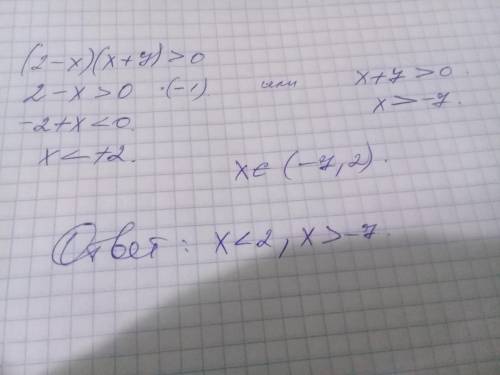 (2-x)(x+7)>0
2-x>0 ·(-1) или x+7>0.
-2+x<0. x>-7.
x<+2.
x∈(-7,2).
Ответ: x<2, x>-7.